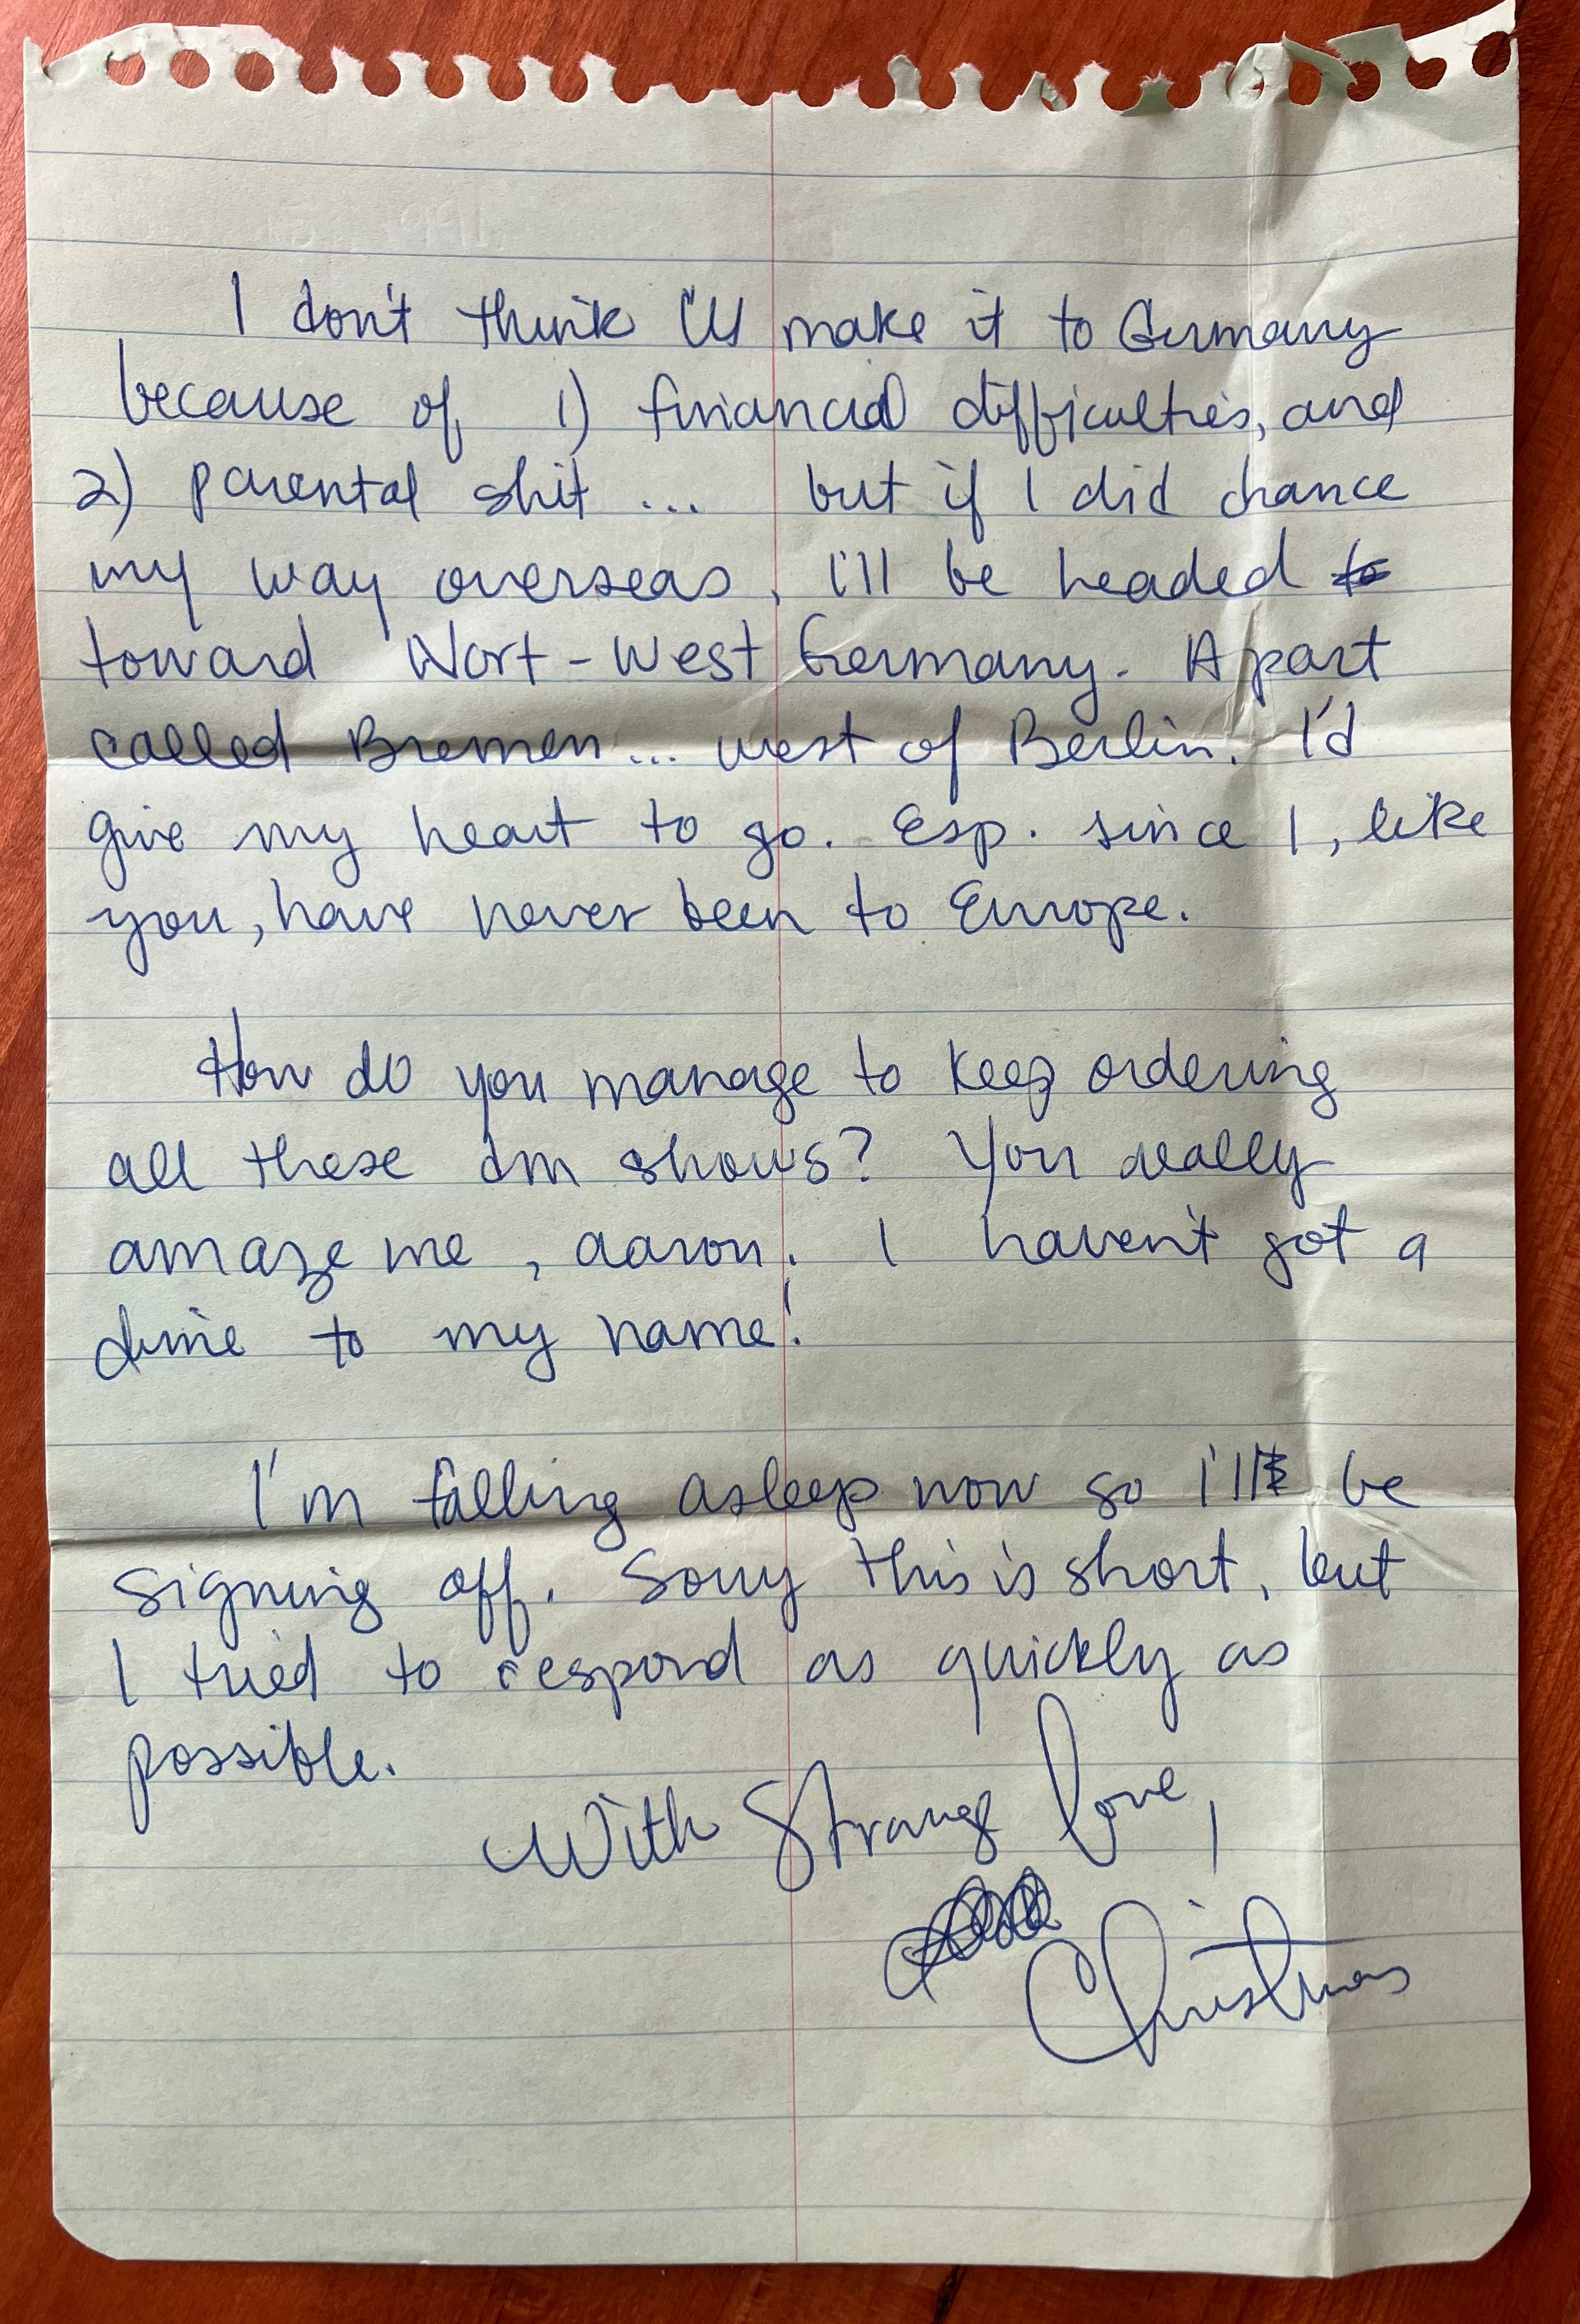 I don't think I'll make it to Germany
because of 1) financial difficulties, and
2) parental shit ... but if I did chance
my way overseas, I'll be headed to
toward Nort-West Germany. A part
called Bremen... west of Berlin. I'd
give my heart to go. Esp. since I, like
you, have never been to Europe.
How do you manage to keep ordering
all these dm shows? You really
amaze me, aaron. I haven't got a
dime to my name!
I'm falling asleep now so I'll be
signing off. Sorry this is short, but
I tried to respond as quickly as
possible.
With Strange Love,
Christmas